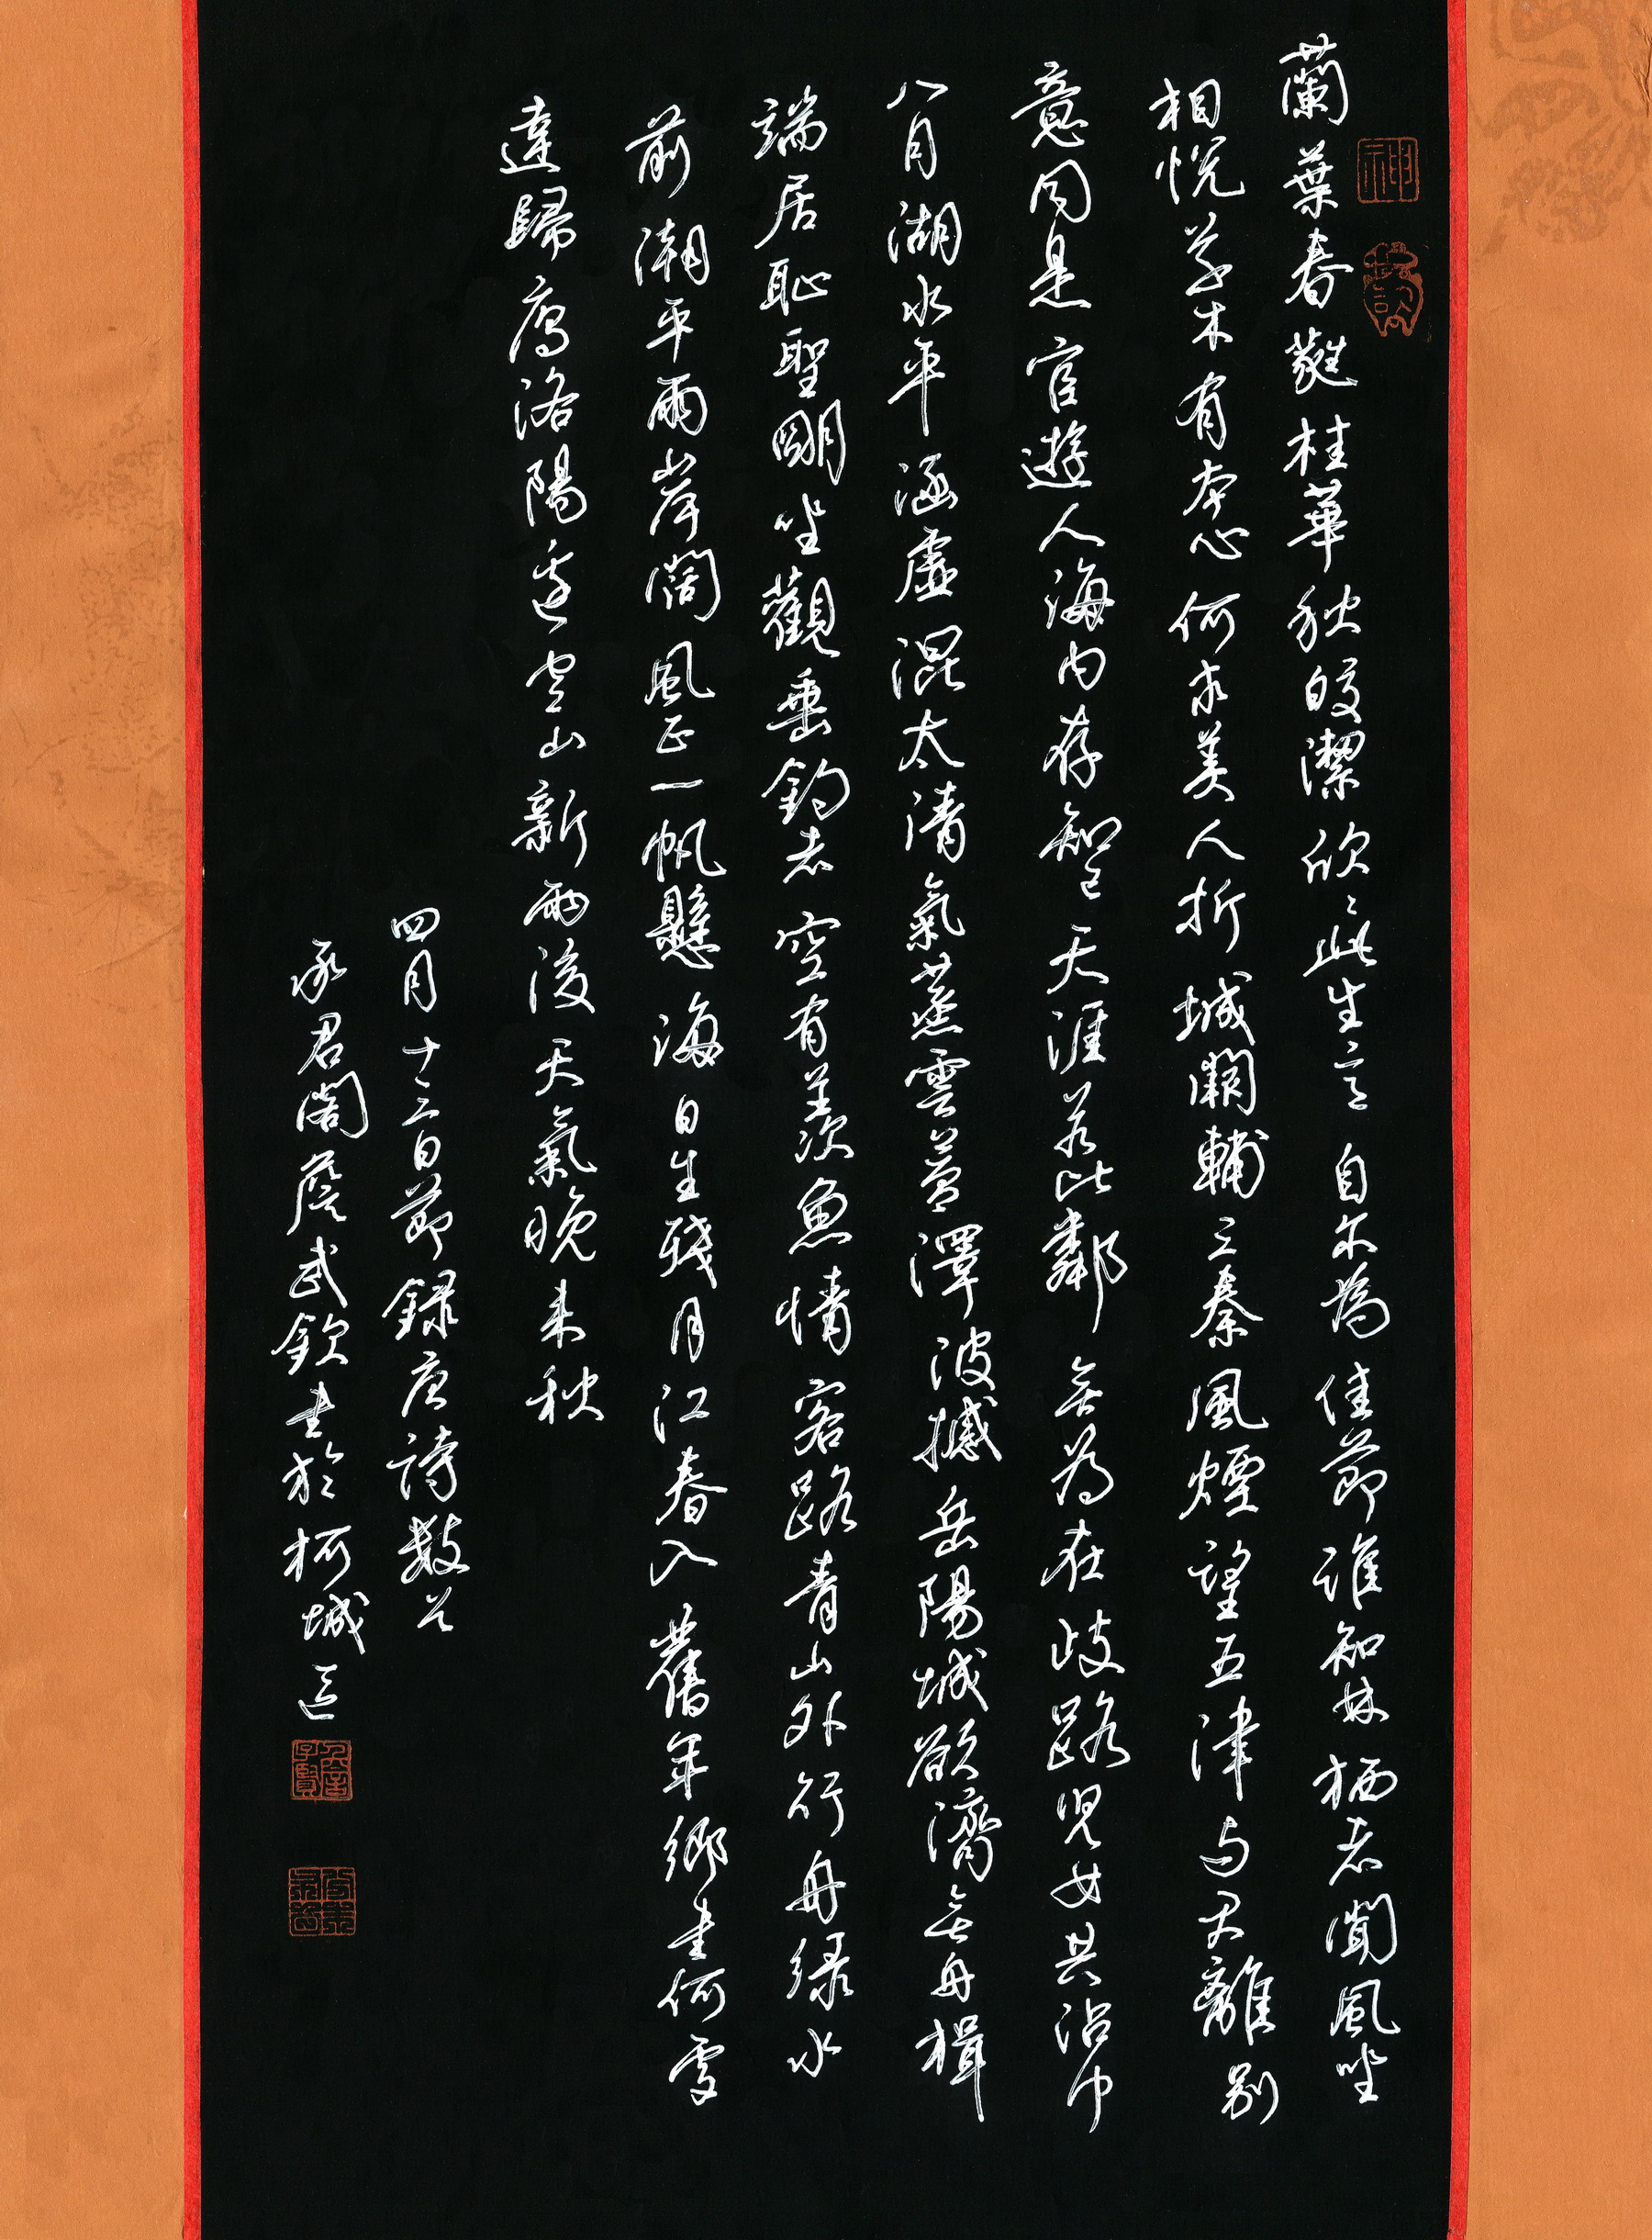 蘭葉春蕤桂華秋皎潔欣〻此生意自尔為佳節誰知林栖者聞風坐
相悅草木有本心何求美人折城闕輔三秦風煙望五津与君離別
意同是宦遊人海內存知己天涯若比鄰無為在歧路児女共沾巾
八月湖水平涵虛混太清氣蒸雲夢澤波撼岳陽城欲濟無舟楫
端居恥聖朙坐觀垂釣者空有羨魚情客路青山外行舟緑水
前潮平兩岸闊風正一帆懸海日生殘月江春入舊年鄉書何處
達歸雁洛陽邊空山新雨後天氣晚來秋
四月十三日節録唐詩數首
承君閣詹武欽書於柯城